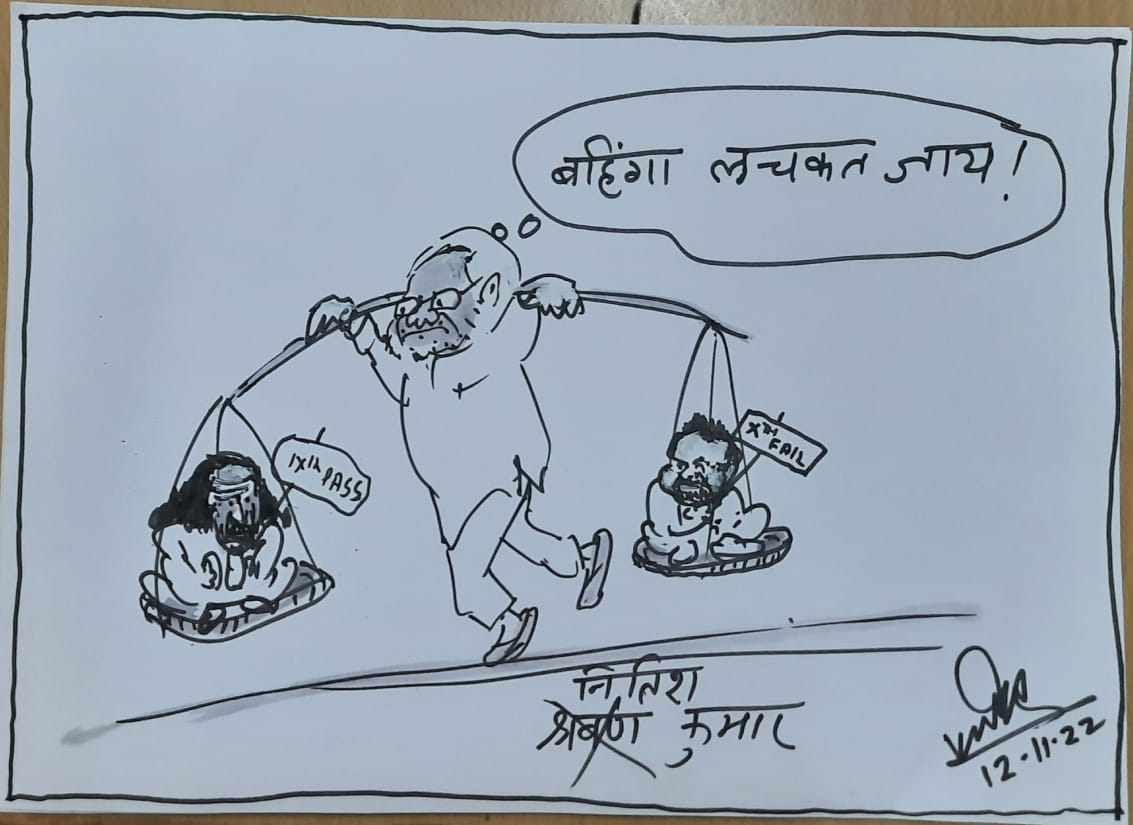 बहिंगा लचकत जाय!
IXth PASS
XTH
FAIL
नितिश
श्रवण कुमार
12.11.22